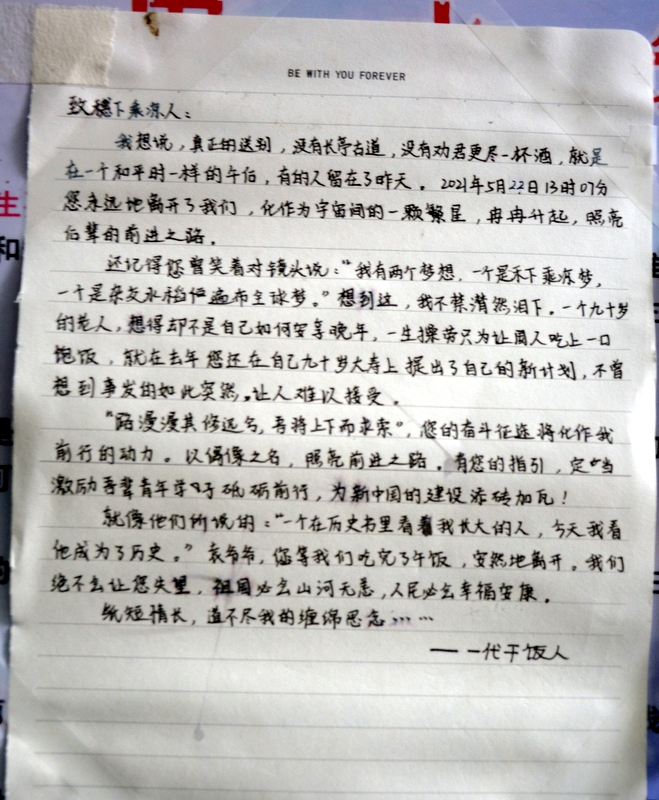 BE WITH YOU FOREVER
致穗下乘凉人：
我想说，真正的送别，没有长亭古道，没有劝君更尽一杯酒，就是
在一个和平时一样的午后，有的人留在了昨天。2021年5月22日13时07分
您永远地离开了我们，化作为宇宙间的一颗繁星，冉冉升起，照亮
后辈的前进之路。
还记得您曾笑着对镜头说："我有两个梦想，一个是禾下乘凉梦，
一个是杂交水稻遍布全球梦。"想到这，我不禁潸然泪下。一个九十岁
的老人，想得却不是自己如何安享晚年，一生操劳只为让国人吃上一口
饱饭，就在去年您还在自己九十岁大寿上提出了自己的新计划，不曾
想到事发的如此突然，让人难以接受。
"路漫漫其修远兮，吾将上下而求索"，您的奋斗征途将化作我
前行的动力。以偶像之名，照亮前进之路。有您的指引，定当
激励吾辈青年学子砥砺前行，为新中国的建设添砖加瓦！
就像他们所说的："一个在历史书里看着我长大的人，今天我看
他成为了历史。"袁爷爷，您等我们吃完了午饭，安然地离开。我们
绝不会让您失望，祖国必会山河无恙，人民必会幸福安康。
纸短情长，道不尽我的缠绵思念……
——一代干饭人
生
和